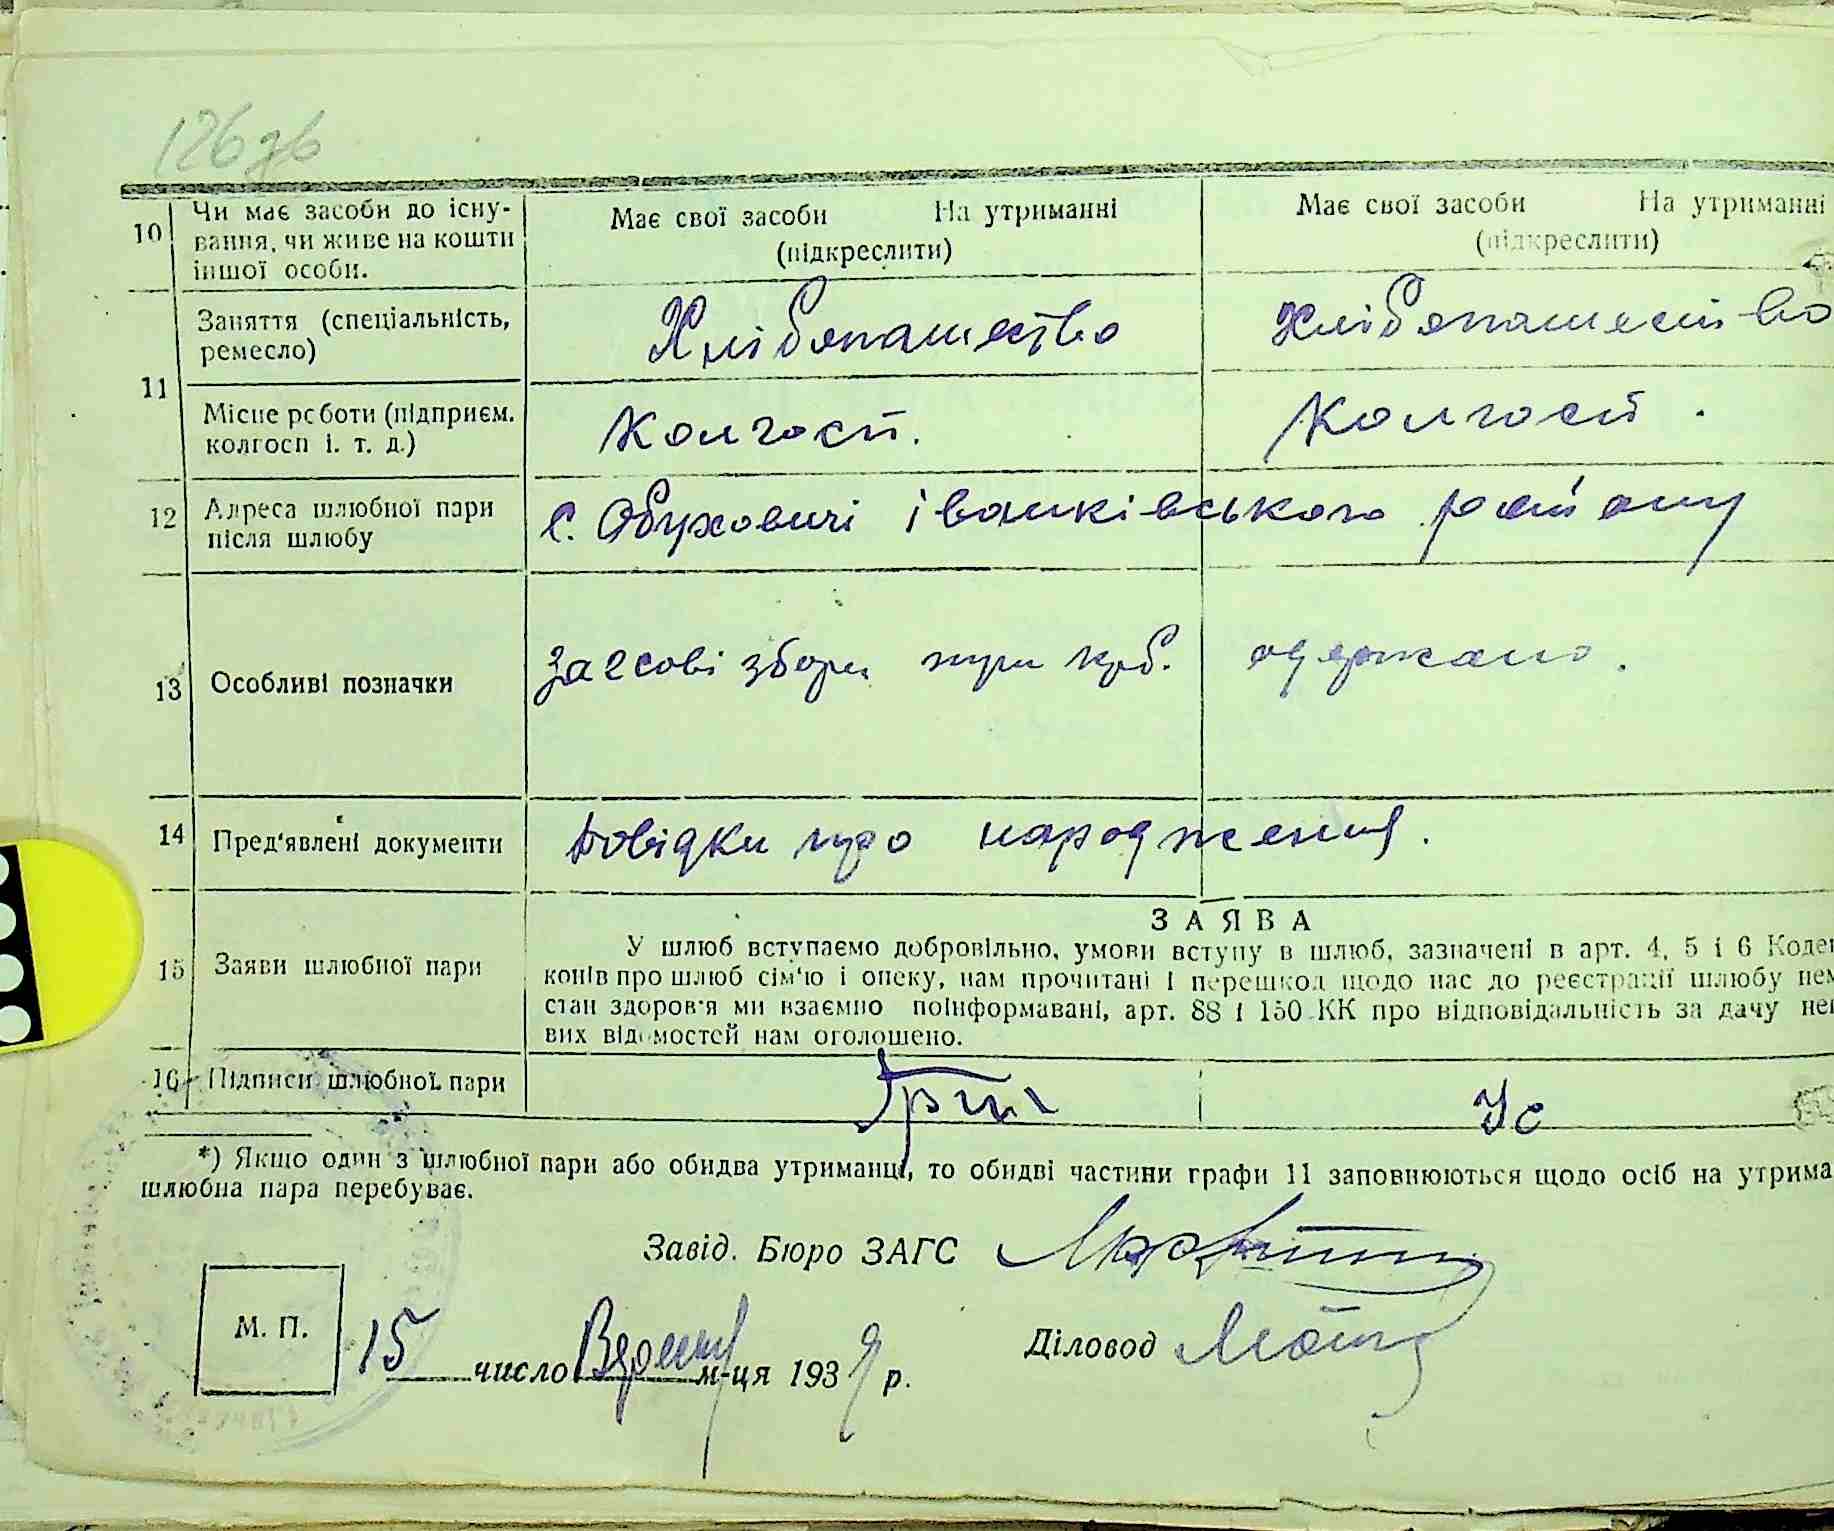 126зв
10 Чи має засоби до існу-
вання, чи живе на кошти
іншої особи.
Має свої засоби На утриманні
(підкреслити)
Має свої засоби На утриманні
(підкреслити)
11 Заняття (спеціальність,
ремесло)
Хлібопашество
Хлібопашество
Місце роботи (підприєм.
колгосп і. т. д.)
Колгосп.
Колгосп.
12 Адреса шлюбної пари
після шлюбу
с. Обуховичі іванківського району
13 Особливі позначки
Загсові збори три крб. одержано.
14 Пред'явлені документи
Довідки про народження.
15 Заяви шлюбної пари
ЗАЯВА
У шлюб вступаємо добровільно, умови вступу в шлюб, зазначені в арт. 4, 5 і 6 Коде
конів про шлюб сім'ю і опеку, нам прочитані і перешкод щодо нас до реєстрації шлюбу нем
стан здоров'я ми взаємно поінформавані, арт. 88 і 150 КК про відповідальність за дачу не
вих відомостей нам оголошено.
16 Підписи шлюбної пари
Ус
*) Якщо один з шлюбної пари або обидва утриманці, то обидві частини графи 11 заповнюються щодо осіб на утрима
шлюбна пара перебуває.
Завід. Бюро ЗАГС
М. П.
15 число Вересня м-ця 1939 р.
Діловод